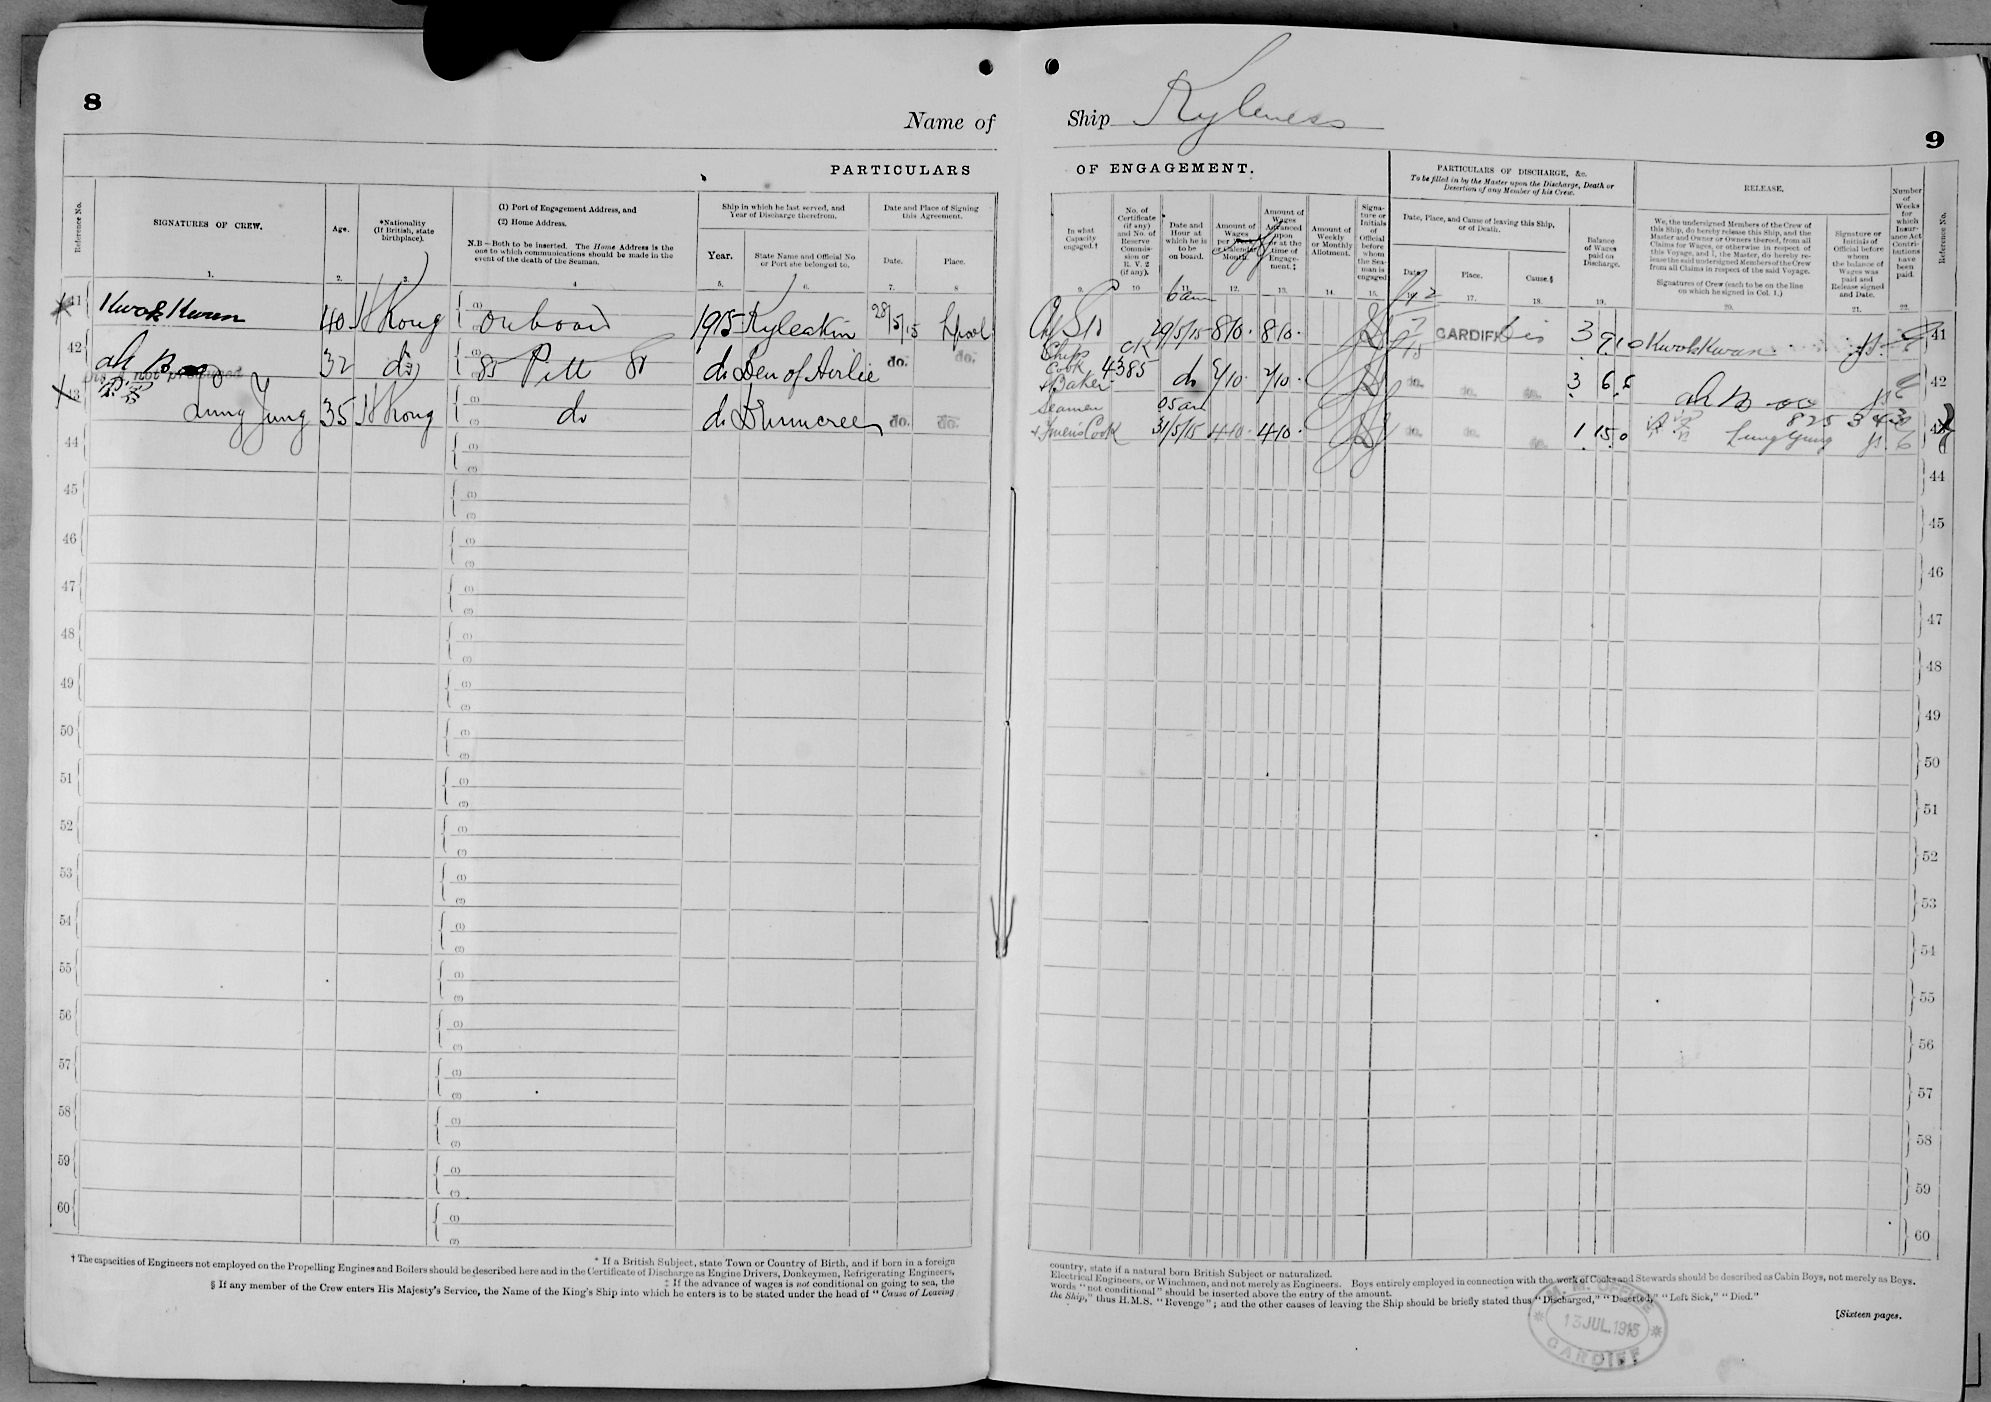 8
Name of
Ship Kyleness
9
PARTICULARS
OF ENGAGEMENT.
PARTICULARS OF DISCHARGE, &c.
To be filled in by the Master upon the Discharge, Death or
Desertion of any Member of his Crew.
RELEASE.
Reference No.
SIGNATURES OF CREW.
1.
Age.
2.
*Nationality
(If British, state
birthplace).
3
(1) Port of Engagement Address, and
(2) Home Address.
N.B—Both to be inserted. The Home Address is the
one to which communications should be made in the
event of the death of the Seaman.
4
Ship in which he last served, and
Year of Discharge therefrom.
Year.
5.
State Name and Official No.
or Port she belonged to.
6.
Date and Place of Signing
this Agreement.
Date.
7.
Place.
8
In what
Capacity
engaged.†
9.
No. of
Certificate
(if any)
and No. of
Reserve
Commis-
sion or
R. V. 2
(if any).
10
Date and
Hour at
which he is
to be
on board.
11.
Amount of
Wages
per
or Calendar
Month.
12.
Amount of
Wages
Advanced
upon
or at the
time of
Engage-
ment.‡
13.
Amount of
Weekly
or Monthly
Allotment.
14.
Signa-
ture or
Initials
of
Official
before
whom
the Sea-
man is
engaged
15.
Date, Place, and Cause of leaving this Ship,
or of Death.
Date
Place.
17.
Cause.§
18.
Balance
of
Wages
paid on
Discharge.
19.
We, the undersigned Members of the Crew of
this Ship, do hereby release this Ship, and the
Master and Owner or Owners thereof, from all
Claims for Wages, or otherwise in respect of
this Voyage, and I, the Master, do hereby re-
lease the said undersigned Members of the Crew
from all Claims in respect of the said Voyage.
Signatures of Crew (each to be on the line
on which he signed in Col. 1.)
20.
Signature or
Initials of
Official before
whom
the balance of
Wages was
paid and
Release signed
and Date.
21.
Number
of
Weeks
for
which
Insur-
ance Act
Contri-
butions
have
been
paid.
22.
Reference No.
41 Kwok Kwan 40 H Kong (1) On board 1915 Kyleakin 28/5/15 Lpool
6 am
Ch Std 29/5/15 8/10. 8/10. CARDIFF Dis 3 9 10 Kwok Kwan 41
42 Ah B 32 do 85 Pitt St do Den of Airlie do. do.
Ships Cook + Baker 4385 do 7/10. 7/10. do. do. do. 3 6 6 Ah B 42
not produced
43 Lung Yung 35 H Kong do do Drumcree do. do.
Seamen + Firemen's Cook 5 am 31/5/15 4/10. 4/10. do. do. do. 1 15 0 Lung Yung
44
44
45
45
46
46
47
47
48
48
49
49
50
50
51
51
52
52
53
53
54
54
55
55
56
56
57
57
58
58
59
59
60
60
* If a British Subject, state Town or Country of Birth, and if born in a foreign
† The capacities of Engineers not employed on the Propelling Engines and Boilers should be described here and in the Certificate of Discharge as Engine Drivers, Donkeymen, Refrigerating Engineers,
‡ If the advance of wages is not conditional on going to sea, the
§ If any member of the Crew enters His Majesty's Service, the Name of the King's Ship into which he enters is to be stated under the head of "Cause of Leaving
country, state if a natural born British Subject or naturalized.
Electrical Engineers, or Winchmen, and not merely as Engineers. Boys entirely employed in connection with the work of Cooks and Stewards should be described as Cabin Boys, not merely as Boys.
words "not conditional" should be inserted above the entry of the amount.
the Ship," thus H.M.S. "Revenge"; and the other causes of leaving the Ship should be briefly stated thus "Discharged," "Deserted," "Left Sick," "Died."
[Sixteen pages.
M. M. OFFICE
13 JUL. 1915
CARDIFF